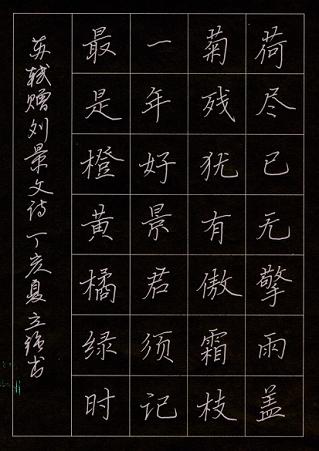 荷尽已无擎雨盖
菊残犹有傲霜枝
一年好景君须记
最是橙黄橘绿时
苏轼赠刘景文诗丁亥夏立强书